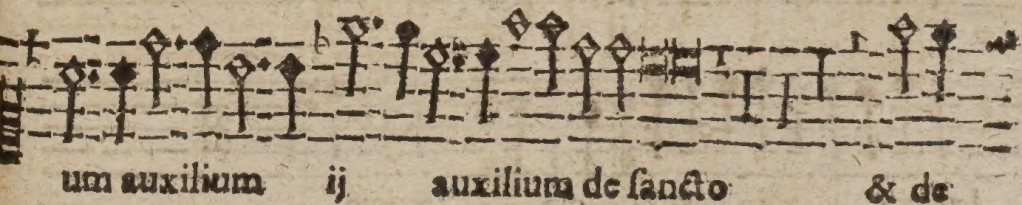 um auxilium ij auxilium de sancto & de